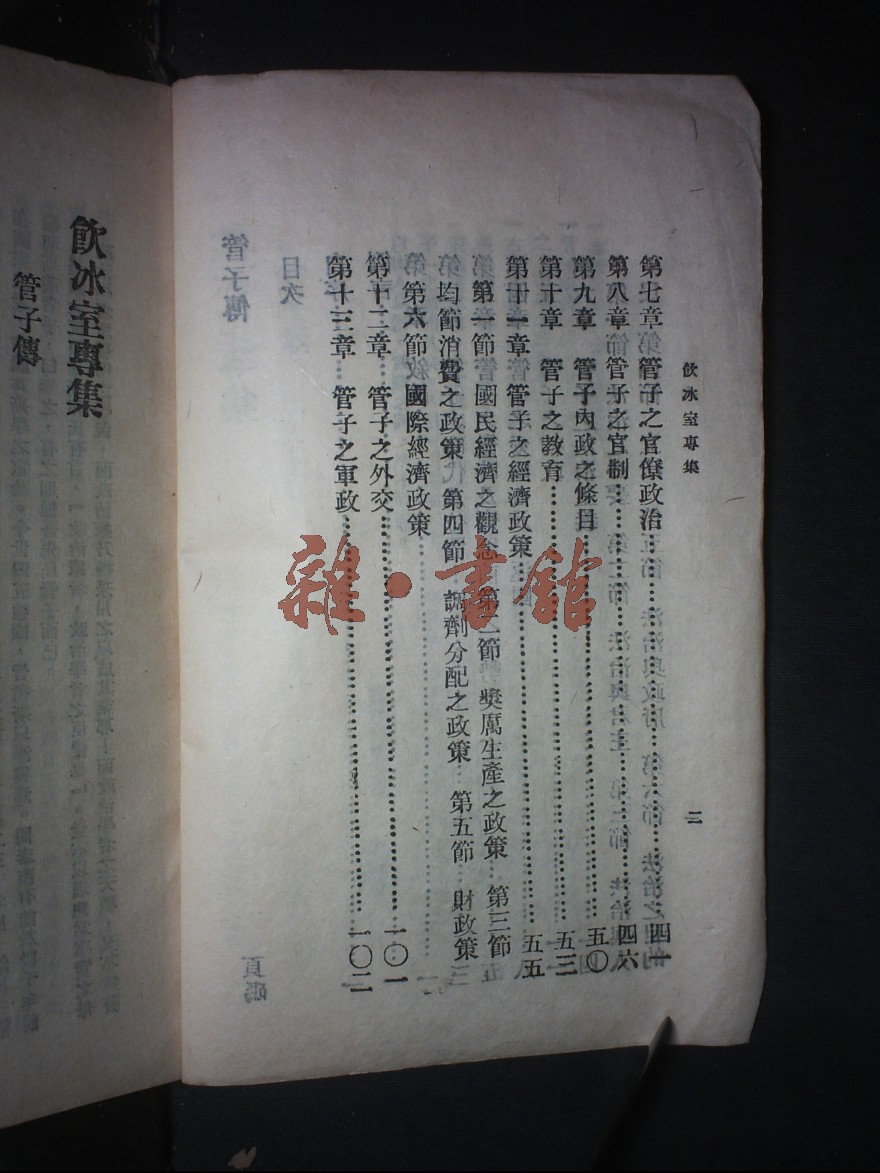 飲冰室專集
二
第七章 管子之官僚政治……四一
第八章 管子之官制……四六
第九章 管子內政之條目……五〇
第十章 管子之教育……五三
第十一章 管子之經濟政策……五五
第一節 國民經濟之觀念 第二節 獎厲生產之政策 第三節
均節消費之政策 第四節 調劑分配之政策 第五節 財政策
第六節 國際經濟政策
第十二章 管子之外交……一〇一
第十三章 管子之軍政……一〇二
飲冰室專集
管子傳
雜·書館